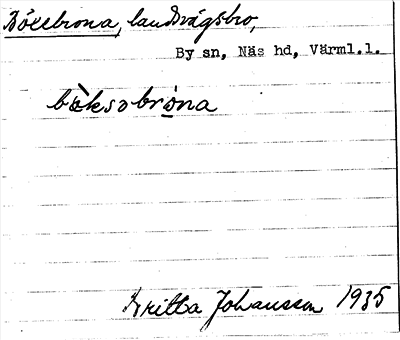 Böxebrona, landsvägsbro,
By sn, Näs hd, Värml.l.
bàksobròna
Britta Johansson 1935